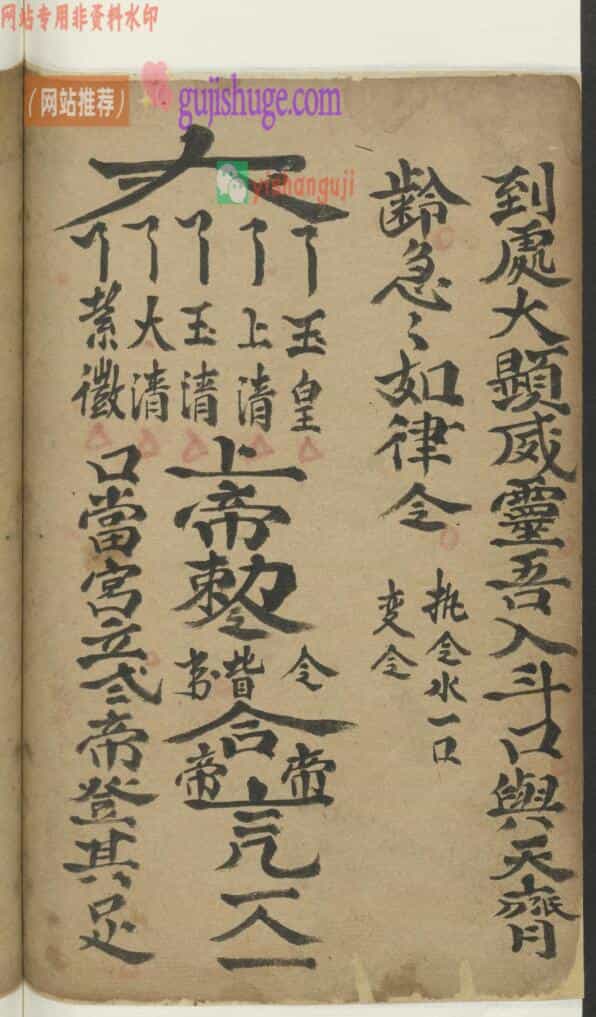 网站专用非资料水印
(网站推荐)
gujishuge.com
yishanguji
到處大顯威靈吾入斗口與天齊
齡急〻如律令
执令水一口
变令
大
玉皇
上清
玉清
大清
紫微
上帝敕令
合
帝
帝
口當宮立
帝登其足